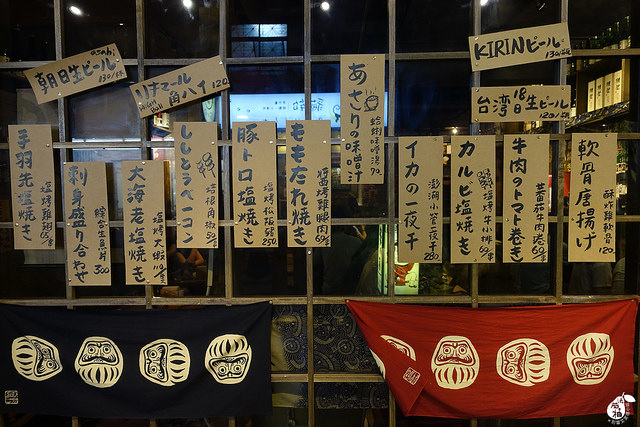 朝日生ビール
asahi
130/杯
ハイ
120
KIRINビール
台湾18日生ビール
120/杯
手羽先塩焼き
塩烤雞翅
65/串
刺身盛り合わせ
綜合生魚片
300
大海老塩焼き
塩烤大蝦
ししとうベーコン
豚トロ塩焼き
塩烤松阪豬
250
ももたれ焼き
醬烤雞腿肉
65/串
あさりの味噌汁
蛤蜊味噌湯
70
イカの一夜干
澎湖小管一夜干
280
カルビ塩焼き
塩烤牛小排
牛肉のトマト巻き
蕃茄牛肉捲
軟骨唐揚げ
酥炸雞軟骨
120